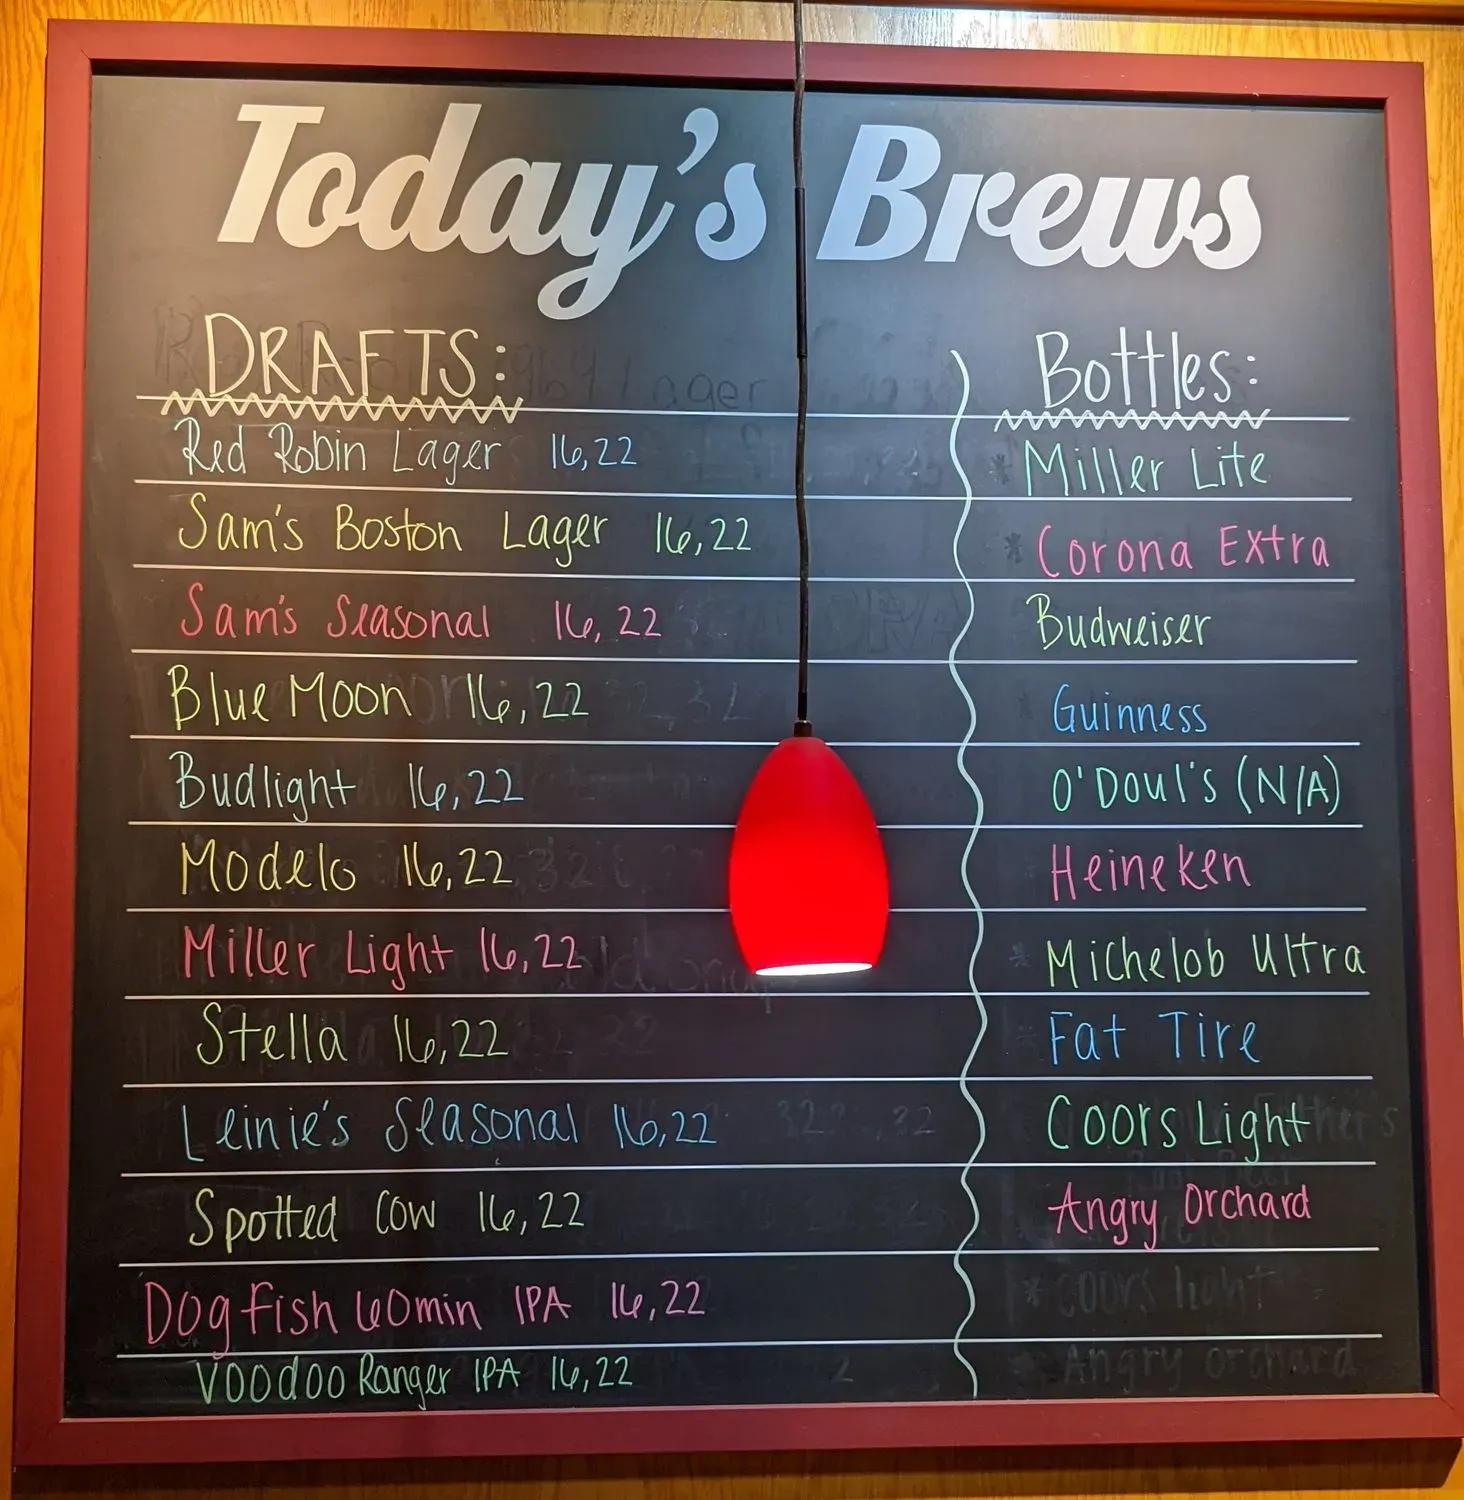 Today's Brews
DRAFTS:
Red Robin Lager 16,22
Sam's Boston Lager 16,22
Sam's Seasonal 16,22
Blue Moon 16,22
Budlight 16,22
Modelo 16,22
Miller Light 16,22
Stella 16,22
Leinie's Seasonal 16,22
Spotted Cow 16,22
Dogfish 60min IPA 16,22
Voodoo Ranger IPA 16,22
Bottles:
* Miller Lite
* Corona Extra
Budweiser
Guinness
O'Doul's (N/A)
Heineken
* Michelob Ultra
Fat Tire
Coors Light
Angry Orchard
* coors light
Angry orchard